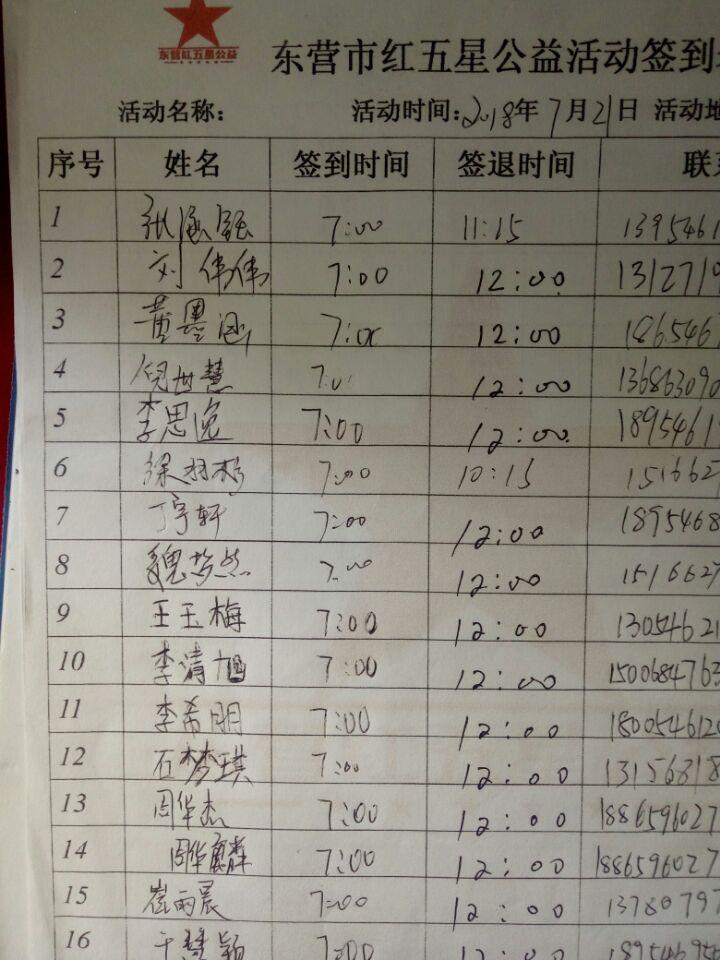 东营红五星公益
东营市红五星公益活动签到
活动名称: 活动时间:2018年7月21日 活动地
序号 姓名 签到时间 签退时间 联系
1 张涵钰 7:00 11:15 1395461
2 刘伟伟 7:00 12:00 1312719
3 黄墨涵 7:00 12:00 1865461
4 倪世慧 7:0 12:00 136863090
5 李思逸 7:00 12:00 1895461
6 徐羽彤 7:00 10:15 151662
7 丁宇轩 7:00 12:00 1895468
8 魏梦然 7:00 12:00 1516627
9 王玉梅 7:00 12:00 13054621
10 李清旭 7:00 12:00 1500684763
11 李希明 7:00 12:00 180054612
12 石梦琪 7:00 12:00 13156818
13 周华杰 7:00 12:00 1886596027
14 周华麟 7:00 12:00 1886596027
15 崔雨晨 7:00 12:00 13780797
16 于慧颖 7:00 12:00 1895469